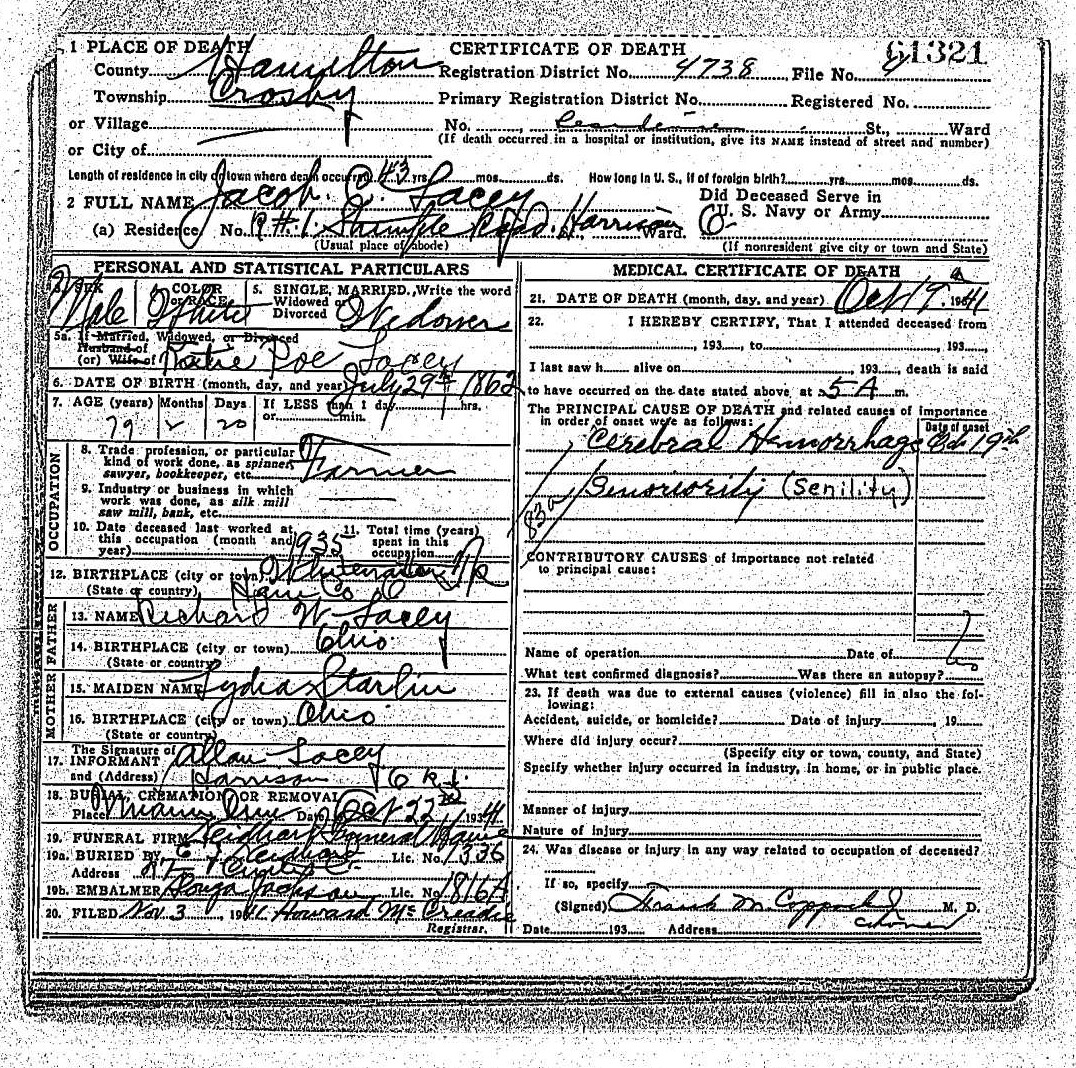 1 PLACE OF DEATH CERTIFICATE OF DEATH 61321
County Hamilton Registration District No. 4738 File No.
Township Crosby Primary Registration District No. Registered No.
or Village No. Residence St., Ward
or City of (If death occurred in a hospital or institution, give its NAME instead of street and number)
Length of residence in city or town where death occurred 43 yrs. mos. ds. How long in U. S., if of foreign birth? yrs. mos. ds.
2 FULL NAME Jacob C. Lacey Did Deceased Serve in U. S. Navy or Army
(a) Residence, No. R #. 1. Road. Harrison Ward. O.
(Usual place of abode) (If nonresident give city or town and State)
PERSONAL AND STATISTICAL PARTICULARS
3. SEX Male COLOR or RACE White 5. SINGLE, MARRIED, Write the word Widowed or Divorced Widower
5a. If Married, Widowed, or Divorced
Husband of
(or) Wife of Katie Poe Lacey
6. DATE OF BIRTH (month, day, and year) July 29th 1862
7. AGE (years) Months Days If LESS than 1 day hrs.
or min.
79 2 20
OCCUPATION
8. Trade, profession, or particular
kind of work done, as spinner, Farmer
sawyer, bookkeeper, etc.
9. Industry or business in which
work was done, as silk mill
saw mill, bank, etc.
10. Date deceased last worked at 11. Total time (years)
this occupation (month and spent in this
year) 1935 occupation
12. BIRTHPLACE (city or town)
(State or country) Co O
FATHER
13. NAME Richard W. Lacey
14. BIRTHPLACE (city or town) Ohio
(State or country)
MOTHER
15. MAIDEN NAME Lydia Starlin
16. BIRTHPLACE (city or town) Ohio
(State or country)
The Signature of
17. INFORMANT Allan Lacey
and (Address) Harrison O R 1.
18. BURIAL, CREMATION, OR REMOVAL
Place Date Oct 22nd 1941
19. FUNERAL FIRM Funeral Home
19a. BURIED BY Lic. No. 1336
Address
19b. EMBALMER Lic. No. 1816A
20. FILED Nov. 3, 1941. Howard McCreadie
Registrar.
MEDICAL CERTIFICATE OF DEATH
21. DATE OF DEATH (month, day, and year) Oct 19. 1941
22. I HEREBY CERTIFY, That I attended deceased from
, 193 , to , 193 ,
I last saw h alive on , 193 , death is said
to have occurred on the date stated above, at 5 A m.
The PRINCIPAL CAUSE OF DEATH and related causes of importance
in order of onset were as follows: Date of onset
Cerebral Hemorrhage Oct 19th
(Senility)
83a
CONTRIBUTORY CAUSES of importance not related
to principal cause:
Name of operation Date of
What test confirmed diagnosis? Was there an autopsy?
23. If death was due to external causes (violence) fill in also the fol-
lowing:
Accident, suicide, or homicide? Date of injury , 19
Where did injury occur?
(Specify city or town, county, and State)
Specify whether injury occurred in industry, in home, or in public place.
Manner of injury
Nature of injury
24. Was disease or injury in any way related to occupation of deceased?
If so, specify
(Signed) Frank M. Coppock J M. D.
Coroner
Date 193 Address